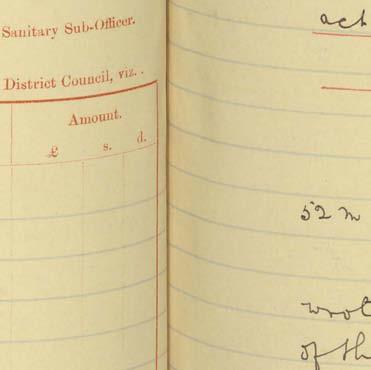 Sanitary Sub-Officer.
District Council, viz. .
Amount.
£ s. d.
act
52 m
wrot
of th